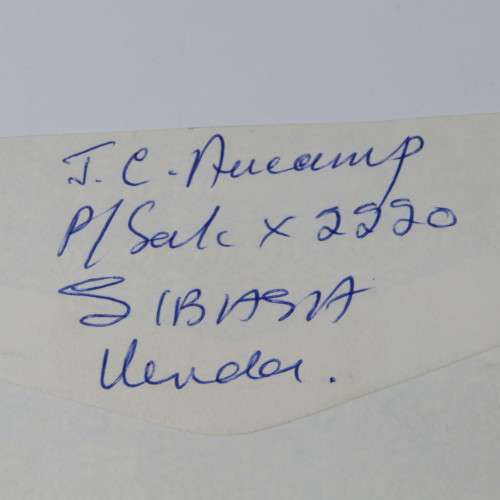 J.C. Aucamp
P/Sak X 2220
SIBASA
Venda.